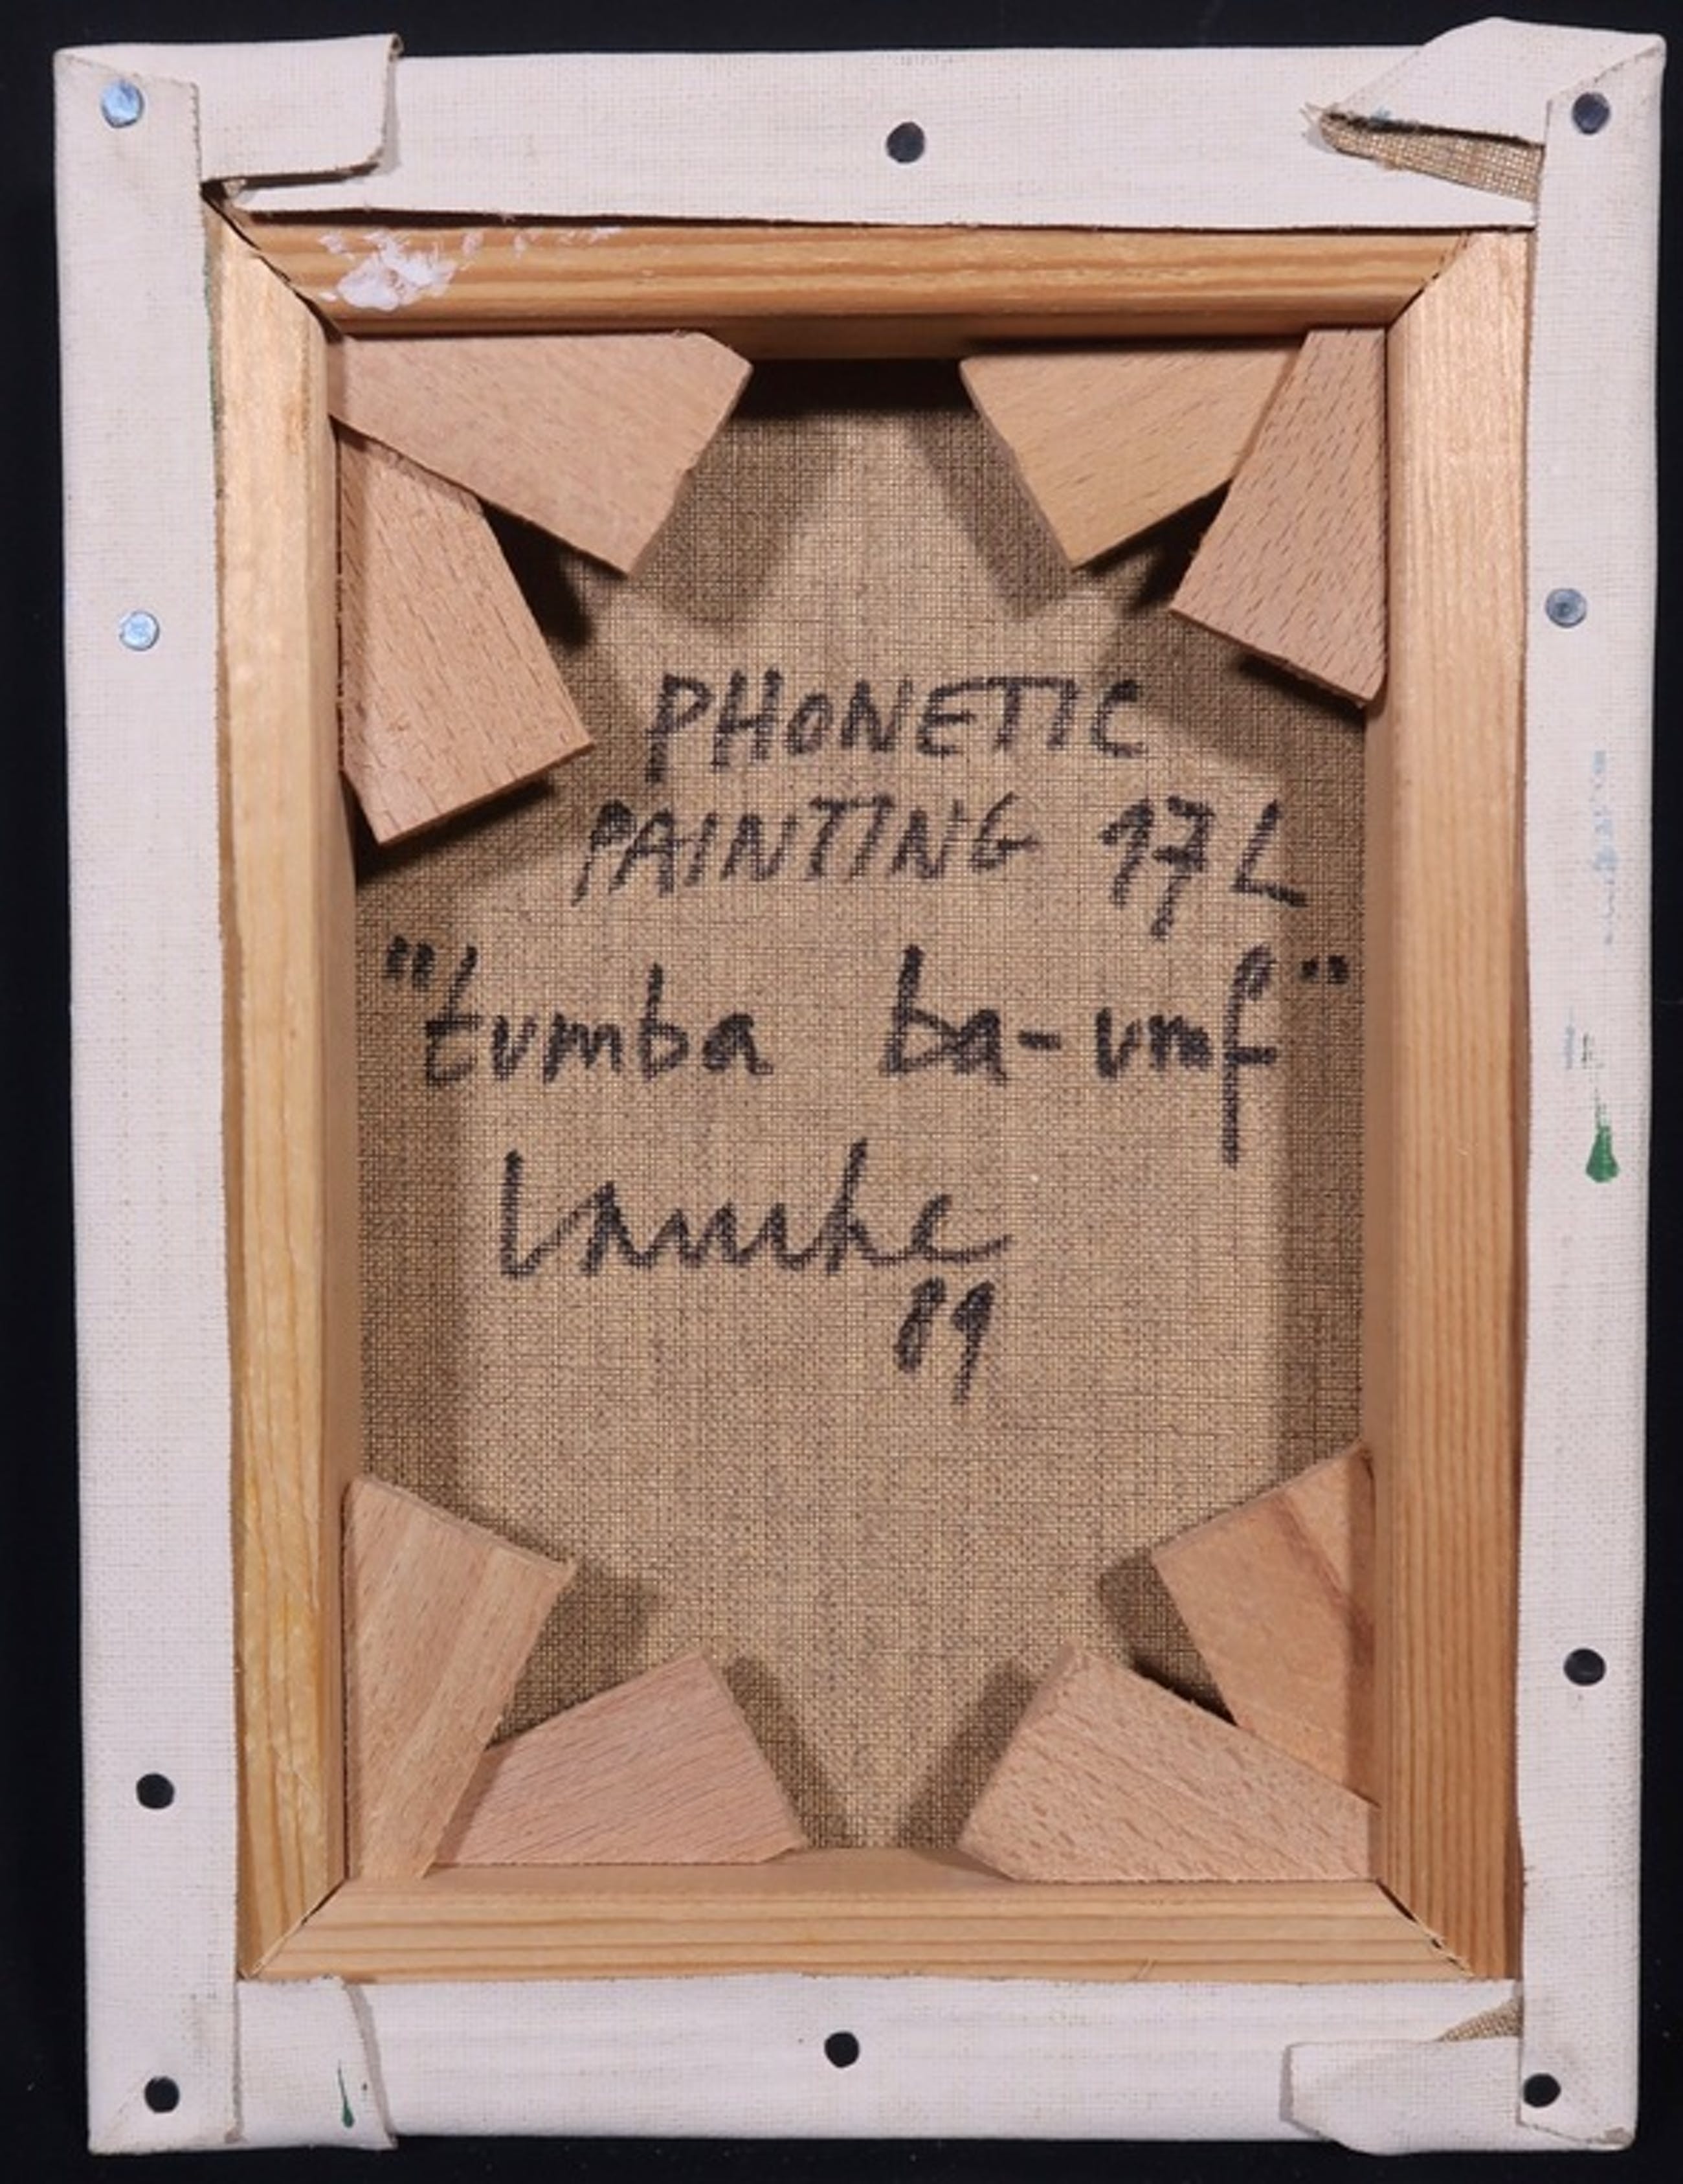 PHONETIC
PAINTING 17 L
"tumba ba-umf"
89